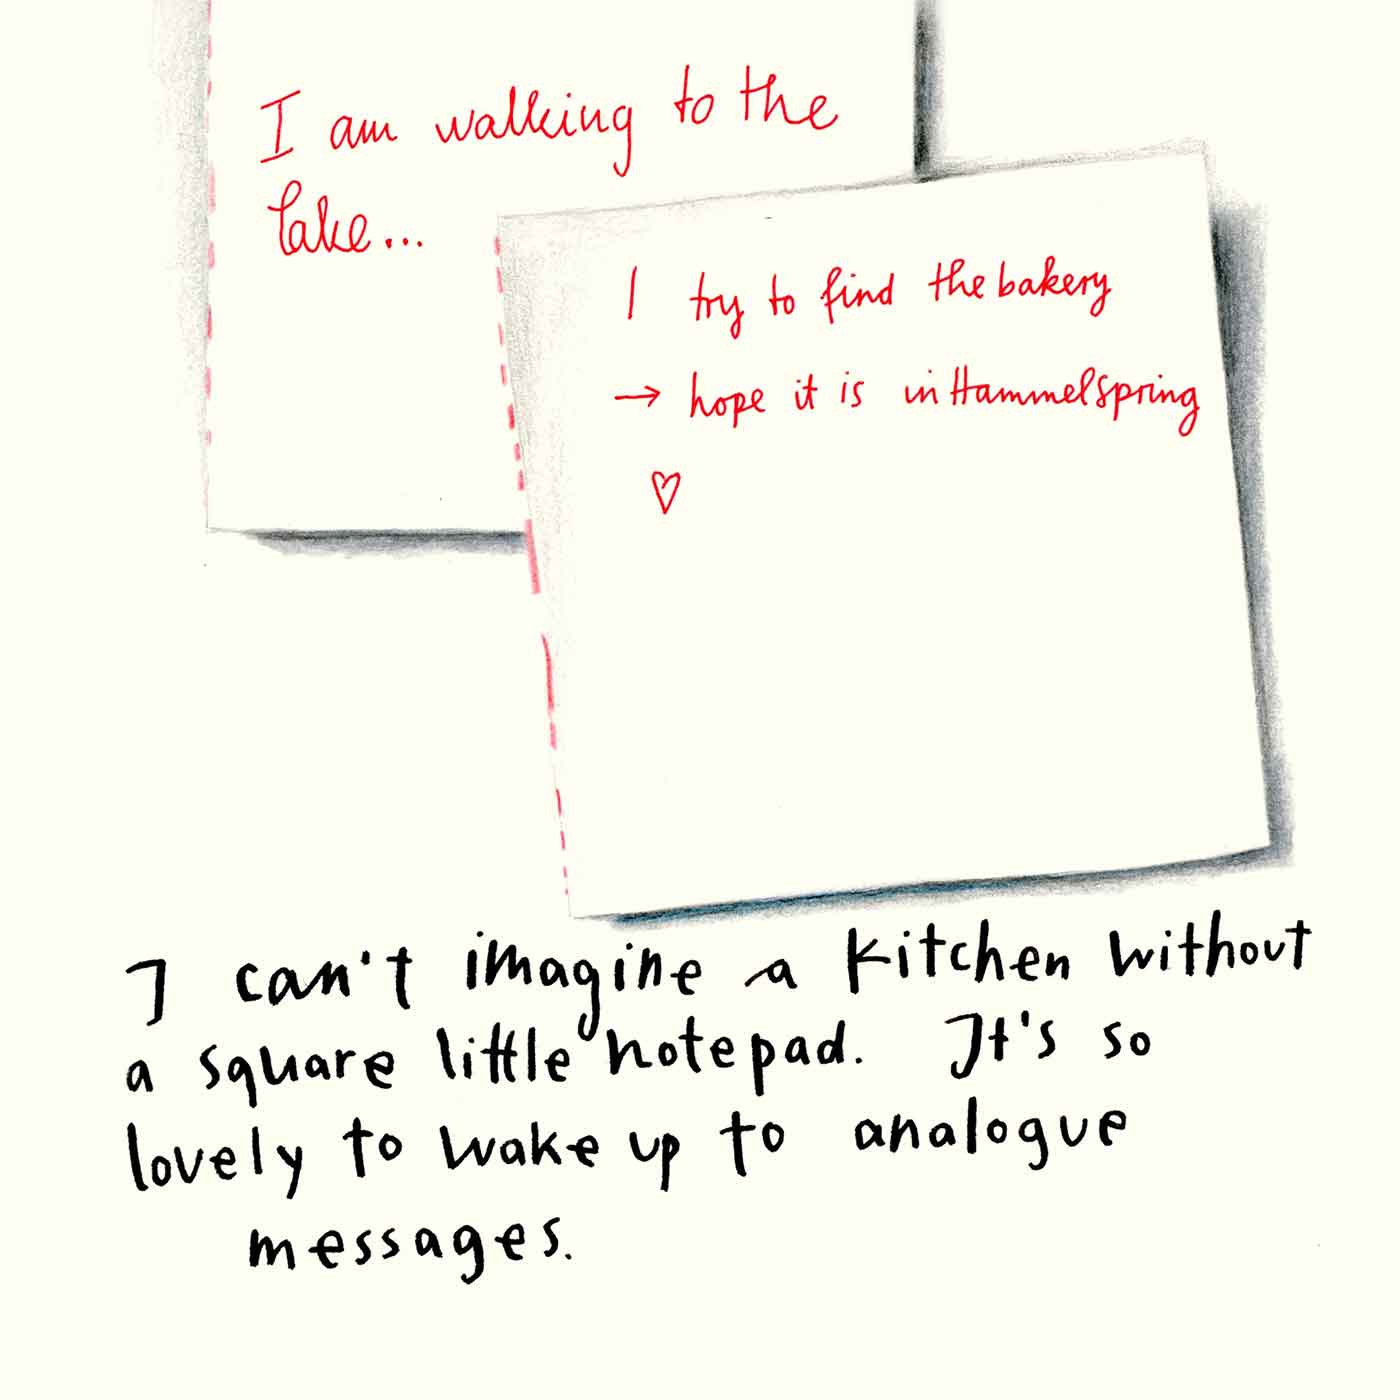 I am walking to the
lake...
I try to find the bakery
→ hope it is in Hammelspring
♡
I can't imagine a kitchen without
a square little notepad. It's so
lovely to wake up to analogue
messages.